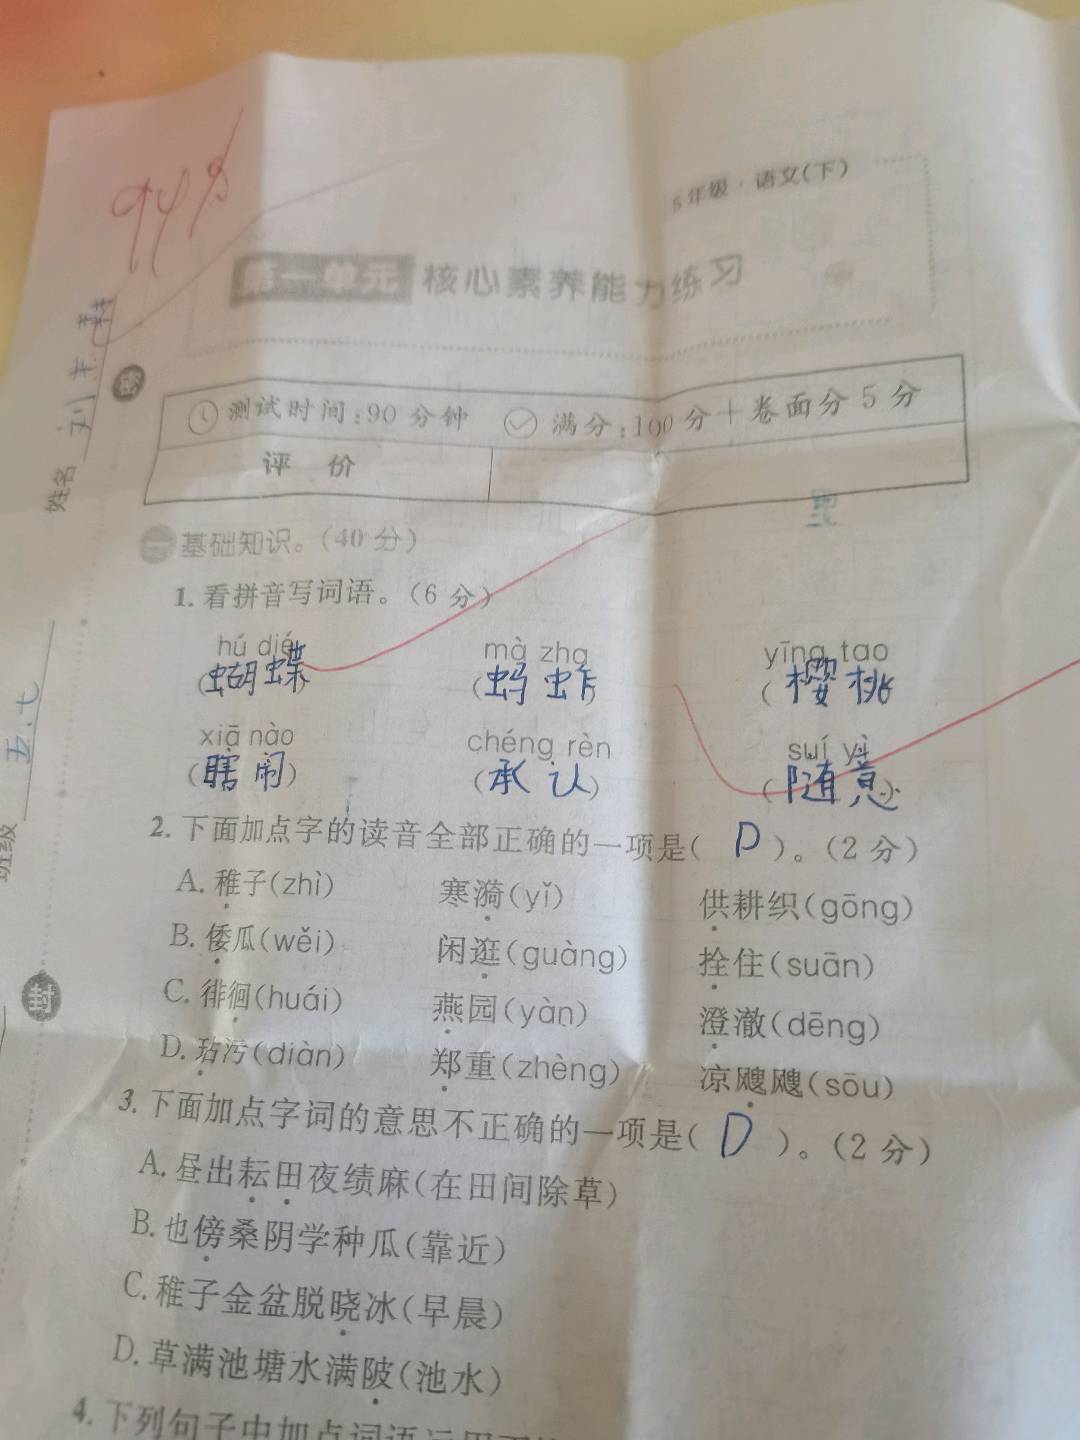 94分
5年级·语文(下)
第一单元 核心素养能力练习
密
测试时间:90分钟 满分:100分+卷面分5分
评 价
姓名
一 基础知识。(40分)
1. 看拼音写词语。(6分)
hú dié mà zha yīng tao
(蝴蝶) (蚂蚱) (樱桃)
xiā nào chéng rèn suí yì
(瞎闹) (承认) (随意)
班级 五.七
2. 下面加点字的读音全部正确的一项是( D )。(2分)
A. 稚子(zhì) 寒漪(yǐ) 供耕织(gōng)
B. 倭瓜(wěi) 闲逛(guàng) 拴住(suān)
封
C. 徘徊(huái) 燕园(yàn) 澄澈(dēng)
D. 玷污(diàn) 郑重(zhèng) 凉飕飕(sōu)
3. 下面加点字词的意思不正确的一项是( D )。(2分)
A. 昼出耘田夜绩麻(在田间除草)
B. 也傍桑阴学种瓜(靠近)
C. 稚子金盆脱晓冰(早晨)
D. 草满池塘水满陂(池水)
4. 下列句子中加点词语运用